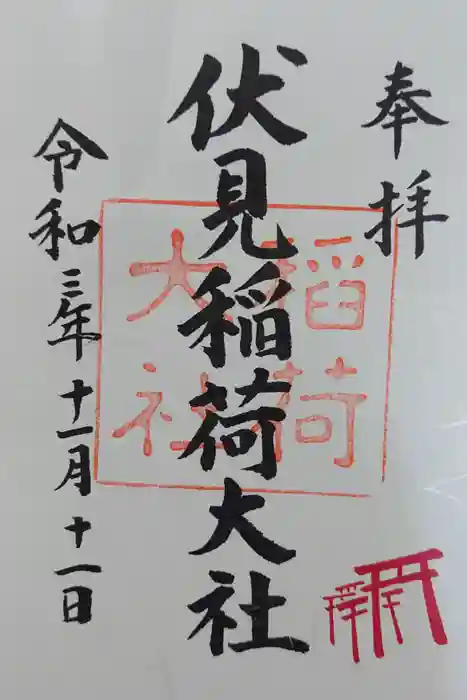 奉拝
伏見稲荷大社
稲荷
大社
令和三年十一月十一日